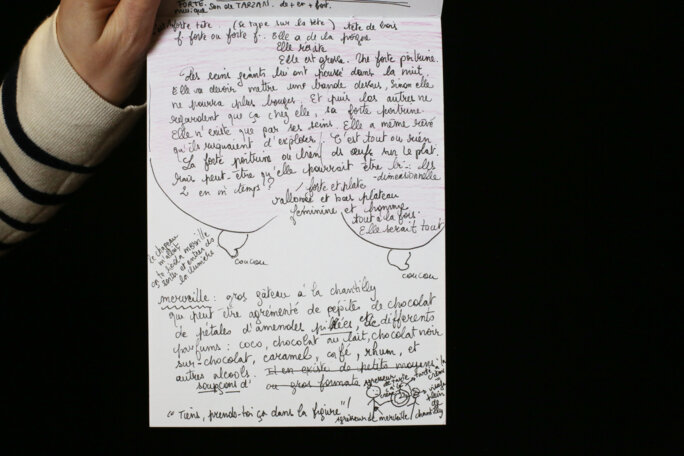 FORTE.
musique son de TARZAN. ds + en + fort.
forte tête. (Se tape sur la tête) tête de bois
f. forte ou forte f.. Elle a de la poigne
Elle résiste
Elle est grosse. Une forte poitrine.
Des seins géants lui ont poussé dans la nuit
Elle va devoir mettre une bande dessus, sinon elle
ne pourra plus bouger. Et puis les autres ne
regardent que ça chez elle, sa forte poitrine.
Elle n'existe que par ses seins. Elle a même rêvé
qu'ils risquaient d'exploser. C'est tout ou rien
La forte poitrine ou bien ds oeufs sur le plat.
mais peut-être qu'elle pourrait être les
-dimensionnelle
2 en m temps ? forte et plate
vallonée et bas plateau
féminine et homme
tout à la fois.
Elle serait tout
coucou
coucou
Le chapeau
merveille
la lumière
merveille : gros gâteau à la chantilly
qui peut être agrémenté de pépites de chocolat
de pétales d'amandes pilées, de différents
parfums : coco, chocolat au lait, chocolat noir
sur-chocolat, caramel, café, rhum, et
autres alcools. Il en existe de petits moyens
soupçons d' ou gros formats
"Tiens, prends-toi ça dans la figure"!
merveille chantilly